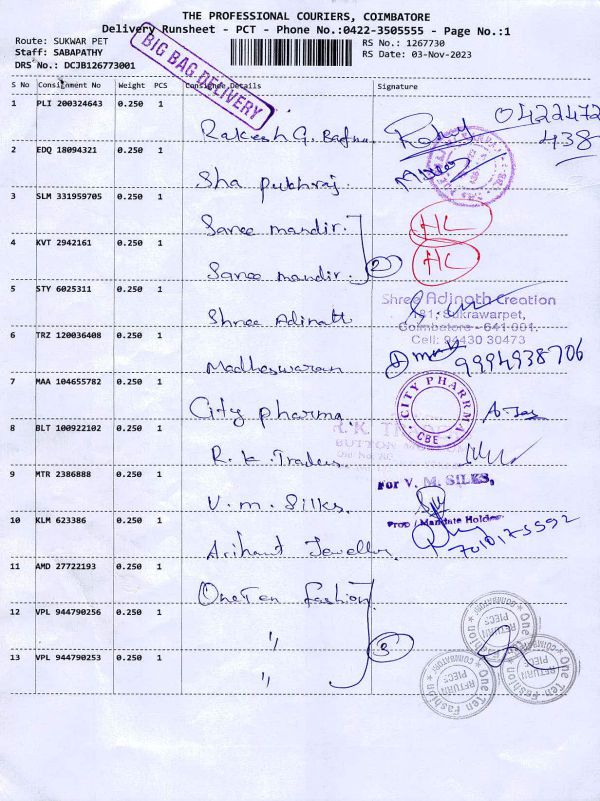 THE PROFESSIONAL COURIERS, COIMBATORE
Delivery Runsheet - PCT - Phone No.:0422-3505555 - Page No.:1
Route: SUKWAR PET
Staff: SABAPATHY
DRS No.: DCJB126773001
RS No.: 1267730
RS Date: 03-Nov-2023
BIG BAG DELIVERY
S No Consignment No Weight PCS Consignee Details Signature
1 PLI 200324643 0.250 1
Rakesh G. Bafna
0422472
438
2 EDQ 18094321 0.250 1
Sha pukhraj.
3 SLM 331959705 0.250 1
Saree mandir.
HL
4 KVT 2942161 0.250 1
Saree mandir.
2
HL
5 STY 6025311 0.250 1
Shree Adinath
Shree Adinath Creation
181, Sukrawarpet,
Coimbatore - 641 001.
Cell: 94430 30473
6 TRZ 120036408 0.250 1
Madheswaran
9994938706
7 MAA 104655782 0.250 1
City pharma.
CITY PHARRMA
CBE
8 BLT 100922102 0.250 1
R.K. Traders
R.K TRADERS
BUTTON
9 MTR 2386888 0.250 1
V.m. Silks.
For V. M. SILKS,
Prop / Mandate Holder
10 KLM 623386 0.250 1
Arihant Jewellers
7010175592
11 AMD 27722193 0.250 1
OneTen Fashion
12 VPL 944790256 0.250 1
"
3
13 VPL 944790253 0.250 1
"
One Ten Fashion
COIMBATORE
RETURN
PIECS
One Ten Fashion
COIMBATORE
RETURN
PIECS
One Ten Fashion
COIMBATORE
RETURN
PIECS